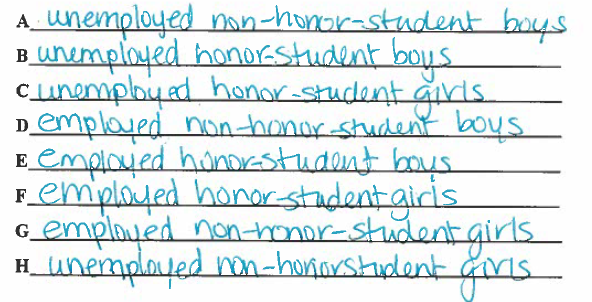 A unemployed non-honor-student boys
B unemployed honor-student boys
C unemployed honor-student girls
D employed non-honor-student boys
E employed honor-student boys
F employed honor-student girls
G employed non-honor-student girls
H unemployed non-honorstudent girls